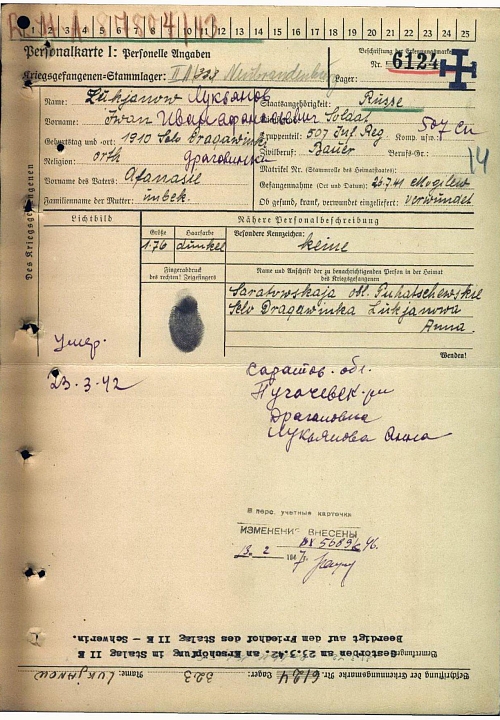 1 2 3 4 5 6 7 8 9 10 11 12 13 14 15 16 17 18 19 20 21 22 23 24 25
Personalkarte I: Personelle Angaben
Beschriftung der Erkennungsmarke
Nr. 6124
Kriegsgefangenen-Stammlager: Neubrandenburg
Lager:
Des Kriegsgefangenen
Name: Lukjanow Лукьянов
Staatsangehörigkeit: Russe
Vorname: Iwan Иван Афанасьевич
Dienstgrad: Soldat
Geburtstag und -ort: 1910 Selo Dragawinka
Truppenteil: 507 Inf. Reg. Komp. usw.: 507 сп
Religion: orth Драгавинка
Zivilberuf: Bauer Berufs-Gr.:
14
Vorname des Vaters: Afanasie
Matrikel Nr. (Stammrolle des Heimatstaates):
Gefangennahme (Ort und Datum): 26.7.41 Mogilew
Familienname der Mutter: unbek.
Ob gesund, krank, verwundet eingeliefert: verwundet
Lichtbild
Nähere Personalbeschreibung
Größe
Haarfarbe
Besondere Kennzeichen:
1.76
dunkel
keine
Fingerabdruck
des rechten! Zeigefingers
Name und Anschrift der zu benachrichtigenden Person in der Heimat
des Kriegsgefangenen
Saratowskaja obl. Puhatschewskie
Selo Dragawinka Lukjanowa
Anna.
Wenden!
Умер.
23.3.42
Саратов. обл.
Пугачевск. р-н
Лукьянова Анна
В перс. учетные карточки
ИЗМЕНЕНИЯ ВНЕСЕНЫ
Beerdigt auf dem Friedhof des Stalag II E - Schwerin.
Gestorben an 23.3.42. an Erschöpfung im Stalag II E
Bemerkungen:
Beschriftung der Erkennungsmarke Nr. 6124 Lager: 323 Name: Lukjanow